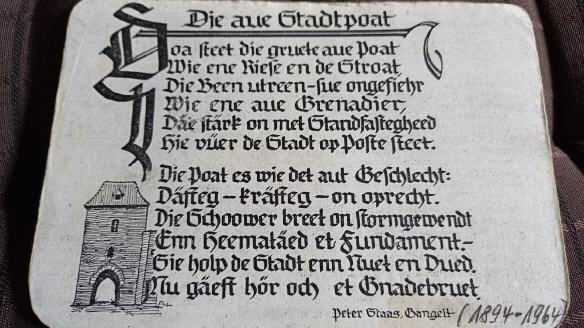 Die aue Stadtpoat
Doa steet die gruete aue Poat
Wie ene Riese en de Stroat,
Die Been utreen-sue ongefiehr
Wie ene aue Grenadier,
Däe stärk on met Standfastegheed
Hie vüer de Stadt op Poste steet.
Die Poat es wie det aut Geschlecht:
Däfteg-kräfteg-on oprecht.
Die Schoower breet on stormgewendt
Enn Heematäed et Fundament.-
Sie holp de Stadt enn Nuet en Dued.
Nu gäeft hör och et Gnadebruet
Peter Staas, Gangelt (1894-1964)